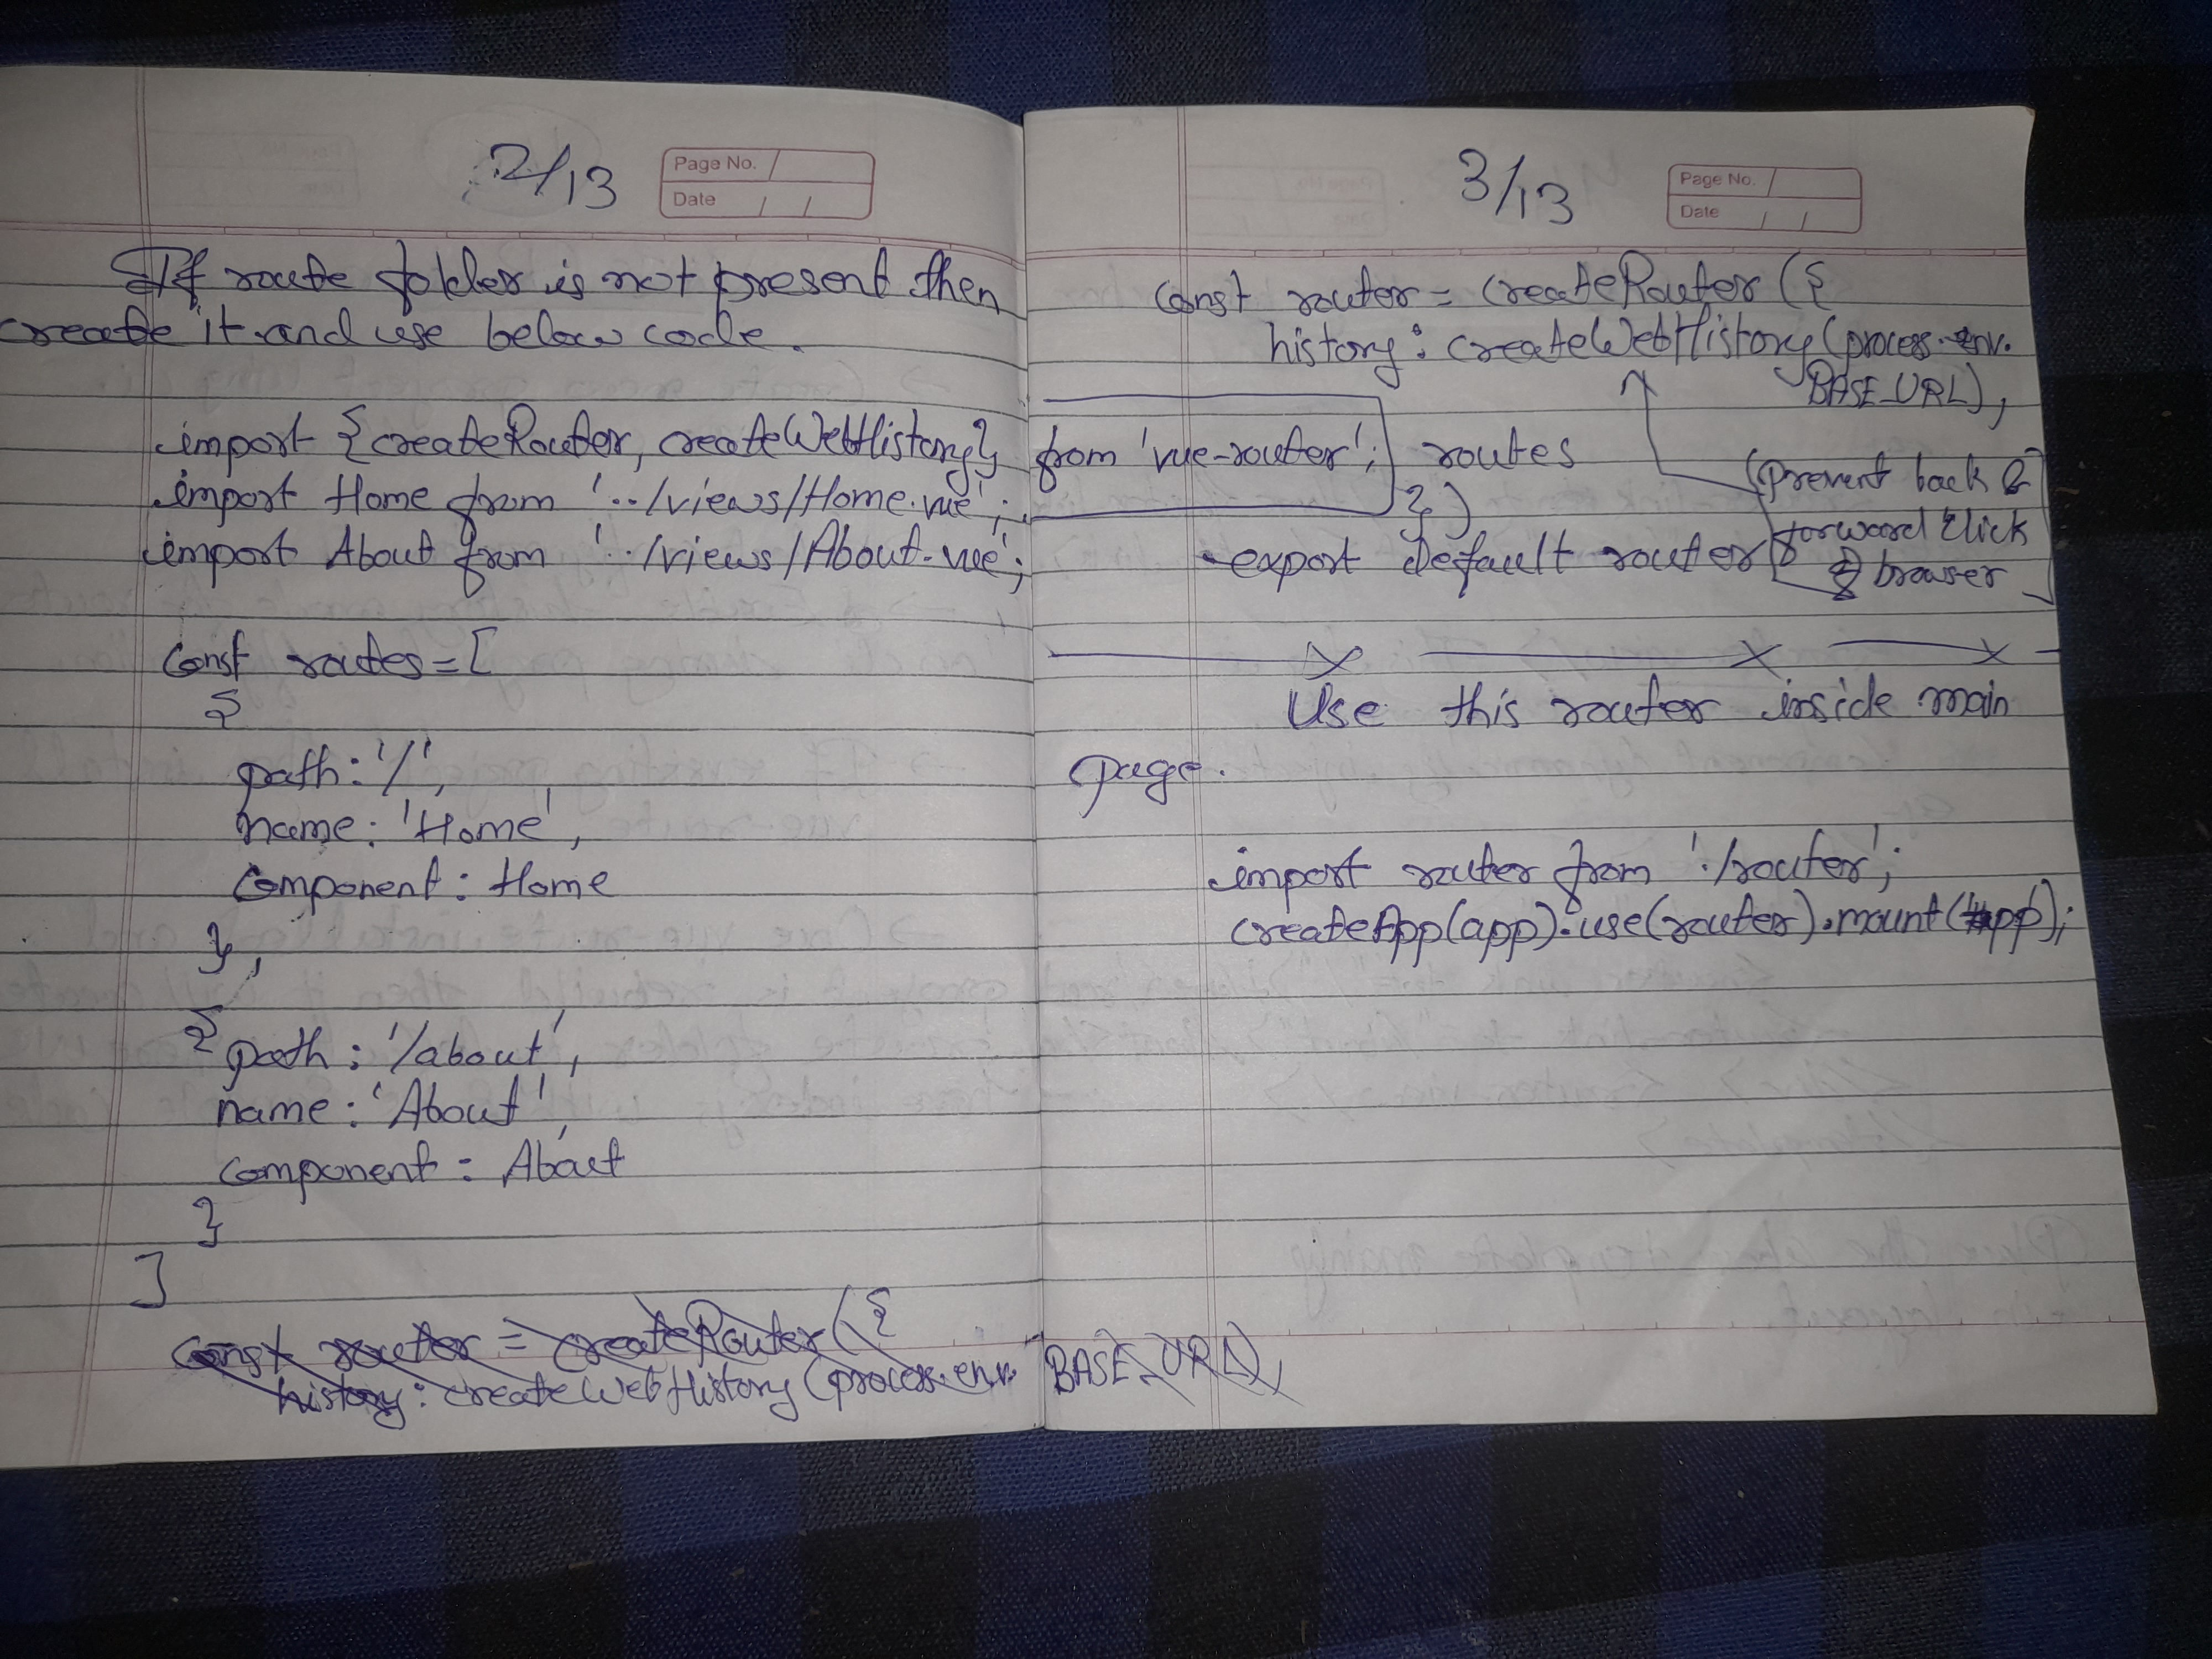 2/13
Page No.
Date / /
If route folder is not present then
create it and use below code.
import {createRouter, createWebHistory} from 'vue-router';
import Home from '../views/Home.vue';
import About from '../views/About.vue';
const routes = [
{
path: '/',
name: 'Home',
component: Home
},
{ path: '/about',
name: 'About',
component: About
}
]
const router = createRouter({
history: createWebHistory(process.env. BASE_URL),
3/13
Page No.
Date / /
const router = createRouter({
history: createWebHistory(process.env.
BASE_URL),
routes
})
export default router
(prevent back &
forward click
browser
Use this router inside main
page.
import router from './router';
createApp(app).use(router).mount(#app);